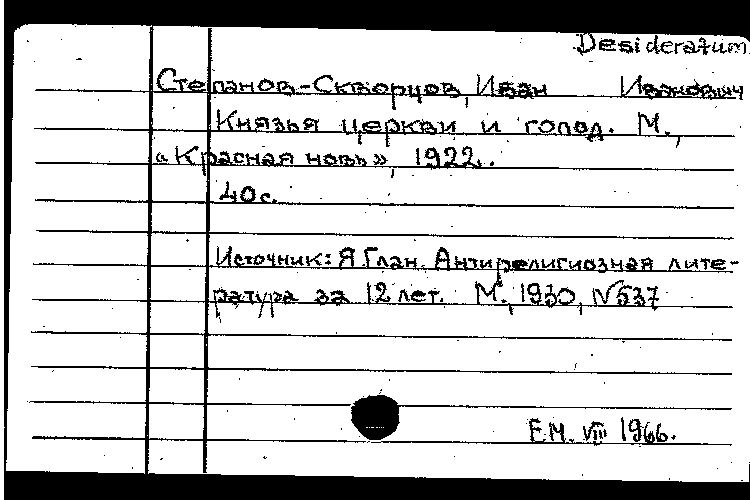 Desideratum
Степанов-Скворцов, Иван Иванович
Князья церкви и голод. М.,
«Красная новь», 1922.
40с.
Источник: Я.Глан. Антирелигиозная лите-
ратура за 12 лет. М., 1930, №537
Е.М. VIII 1966.